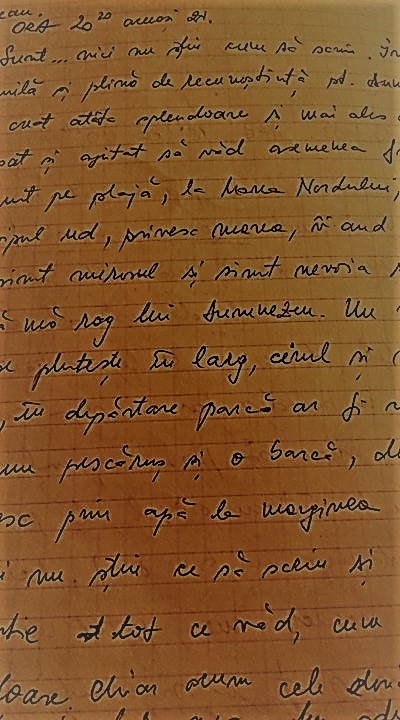 ORA 20 20 aceeași zi.
Sunt... nici nu știu cum să scriu. În
milă și plină de recunoștință pt. Dum
creat atâta splendoare și mai ales
și ajutat să văd asemenea
pe plajă, la Marea Nordului,
ud, privesc marea, îi aud
simt mirosul și simt nevoia
să mă rog lui Dumnezeu. Un
plutește în larg, cerul și
, în depărtare parcă ar fi
pescăruș și o barcă, de
esc prin apă la marginea
nu știu ce să scriu și
tot ce văd, cum
loare. Chiar acum cele două